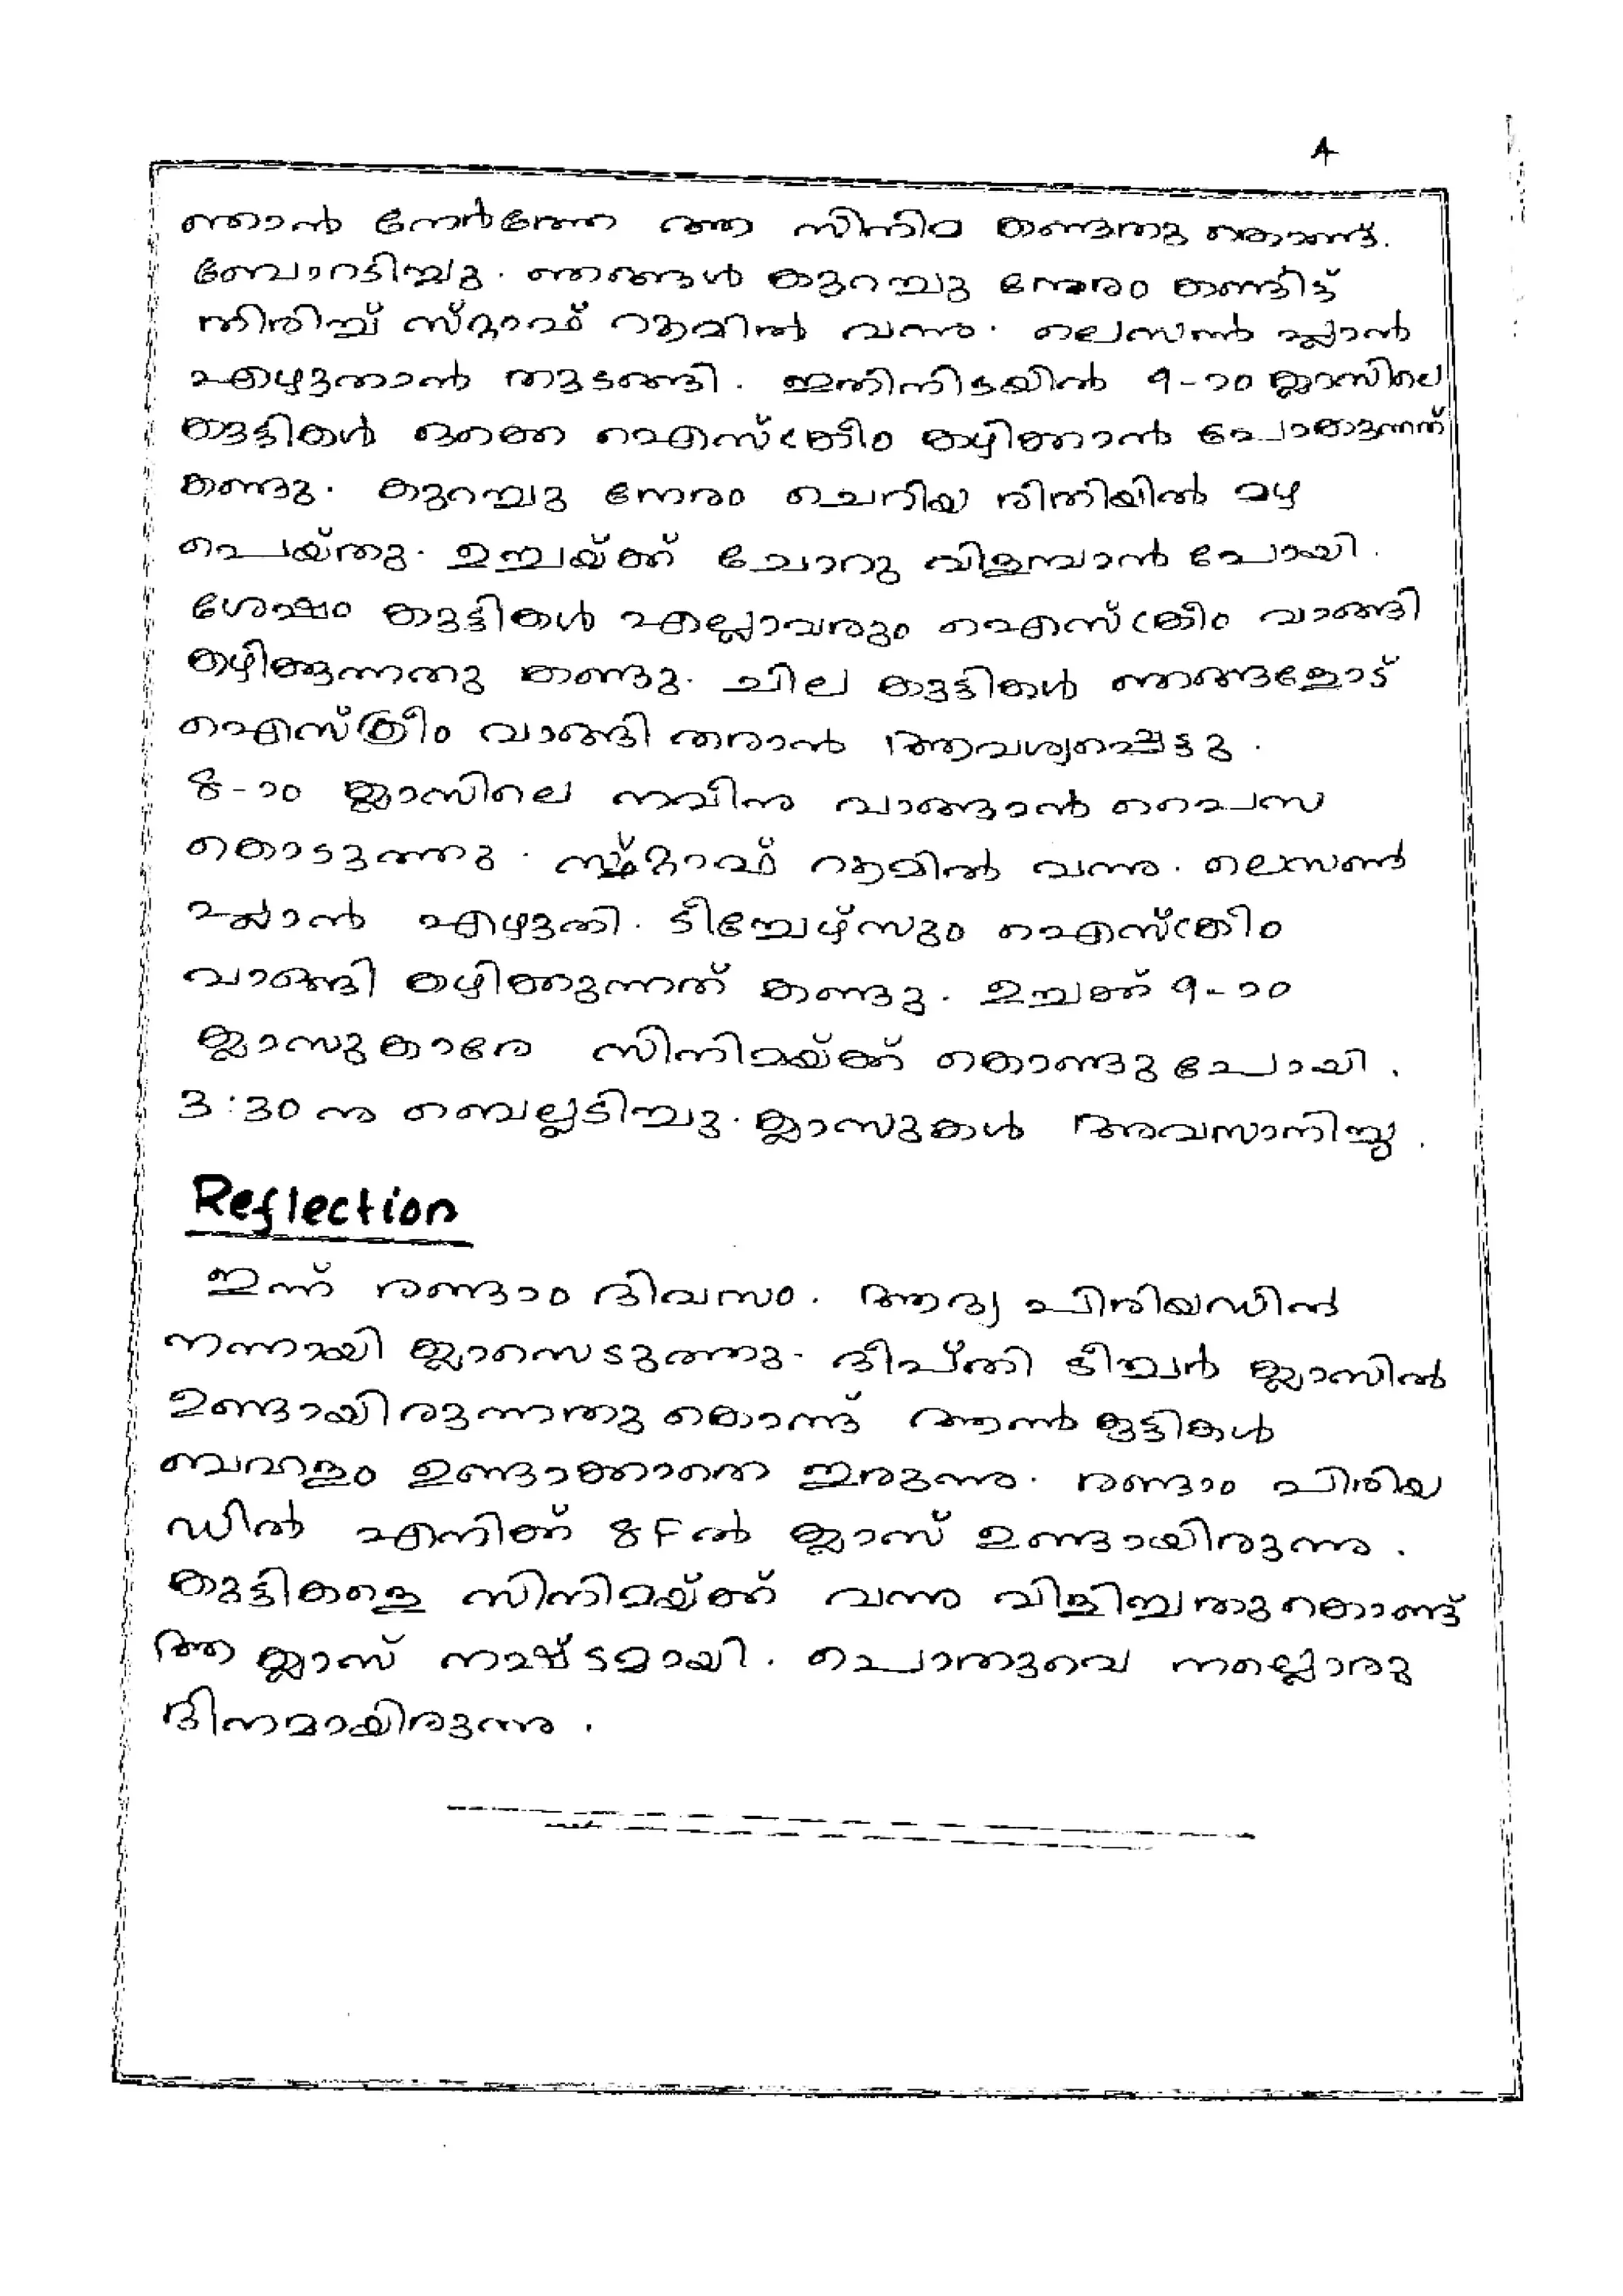 4
ഞാൻ നേർത്തേ ആ സിനിമ കണ്ടതു കൊണ്ട്.
ബോറടിച്ചു. ഞങ്ങൾ കുറച്ചു നേരം കണ്ടിട്ട്
തിരിച്ച് സ്റ്റാഫ് റൂമിൽ വന്നു. ലെസൺ പ്ലാൻ
എഴുതാൻ തുടങ്ങി. ഇതിനിടയിൽ 9-ാം ക്ലാസിലെ
കുട്ടികൾ ഒക്കെ ഐസ്ക്രീം കഴിക്കാൻ പോകുന്നത്
കണ്ടു. കുറച്ചു നേരം ചെറിയ രീതിയിൽ മഴ
പെയ്തു. ഉച്ചയ്ക്ക് ചോറു വിളമ്പാൻ പോയി.
ശേഷം കുട്ടികൾ എല്ലാവരും ഐസ്ക്രീം വാങ്ങി
കഴിക്കുന്നതു കണ്ടു. ചില കുട്ടികൾ ഞങ്ങളോട്
ഐസ്ക്രീം വാങ്ങി തരാൻ ആവശ്യപ്പെട്ടു.
8-ാം ക്ലാസിലെ നവീനു വാങ്ങാൻ പൈസ
കൊടുത്തു. സ്റ്റാഫ് റൂമിൽ വന്നു. ലെസൺ
പ്ലാൻ എഴുതി. ടീച്ചേഴ്സും ഐസ്ക്രീം
വാങ്ങി കഴിക്കുന്നത് കണ്ടു. ഉച്ചക്ക് 9-ാം
ക്ലാസുകാരേ സിനിമയ്ക്ക് കൊണ്ടുപോയി.
3:30 നു ബെല്ലടിച്ചു. ക്ലാസുകൾ അവസാനിച്ചു.
Reflection
ഇന്ന് രണ്ടാം ദിവസം. ആദ്യ പിരിയഡിൽ
നന്നായി ക്ലാസെടുത്തു. ദീപ്തി ടീച്ചർ ക്ലാസിൽ
ഉണ്ടായിരുന്നതു കൊണ്ട് ആൺ കുട്ടികൾ
ബഹളം ഉണ്ടാക്കാതെ ഇരുന്നു. രണ്ടാം പിരിയ
ഡിൽ എനിക്ക് 8F ൽ ക്ലാസ് ഉണ്ടായിരുന്നു.
കുട്ടികളെ സിനിമയ്ക്ക് വന്നു വിളിച്ചതുകൊണ്ട്
ആ ക്ലാസ് നഷ്ടമായി. പൊതുവെ നല്ലൊരു
ദിനമായിരുന്നു.